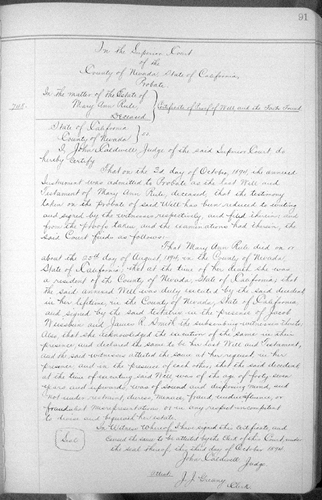 91
In the Superior Court
of the
County of Nevada, State of California,
Probate
In the matter of the Estate of
Mary Ann Rule,
Deceased
Certificate of Proof of Will and the Facts Found
State of California
County of Nevada } ss
I, John Caldwell, Judge of the said Superior Court do
hereby Certify
That on the 3d day of October, 1894, the annexed
Instrument was admitted to Probate as the last Will and
Testament of Mary Ann Rule, deceased, that the testimony
taken on the probate of said Will has been reduced to writing
and signed by the witnesses respectively, and filed herein; and
from the proofs taken and the examinations had therein, the
said Court finds as follows:
That Mary Ann Rule died on or
about the 20th day of August 1894, in the County of Nevada,
State of California; that at the time of her death she was
a resident of the County of Nevada, State of California; that
the said annexed Will was duly executed by the said decedent
in her lifetime, in the County of Nevada, State of California
and signed by the said testatrix in the presence of Jacob
and James K. the subscribing witnesses thereto.
Also, that she acknowledged the execution of the same in their
presence, and declared the same to be her last Will and Testament,
and the said witnesses attested the same at her request in her
presence and in the presence of each other; that the said decedent
at the time of executing said Will, was of the age of forty seven
years and upwards, was of sound and disposing mind, and
not under restraint, duress, menace, fraud, undue influence, or
fraudulent misrepresentations or in any respect incompetent
to devise and bequeath her estate
Seal
In Witness Whereof I have signed this Certificate, and
caused the same to be attested by the Clerk of this Court under
the seal thereof, this third day of October 1894.
John Caldwell
Judge
Attest
J. J. Greany
Clerk